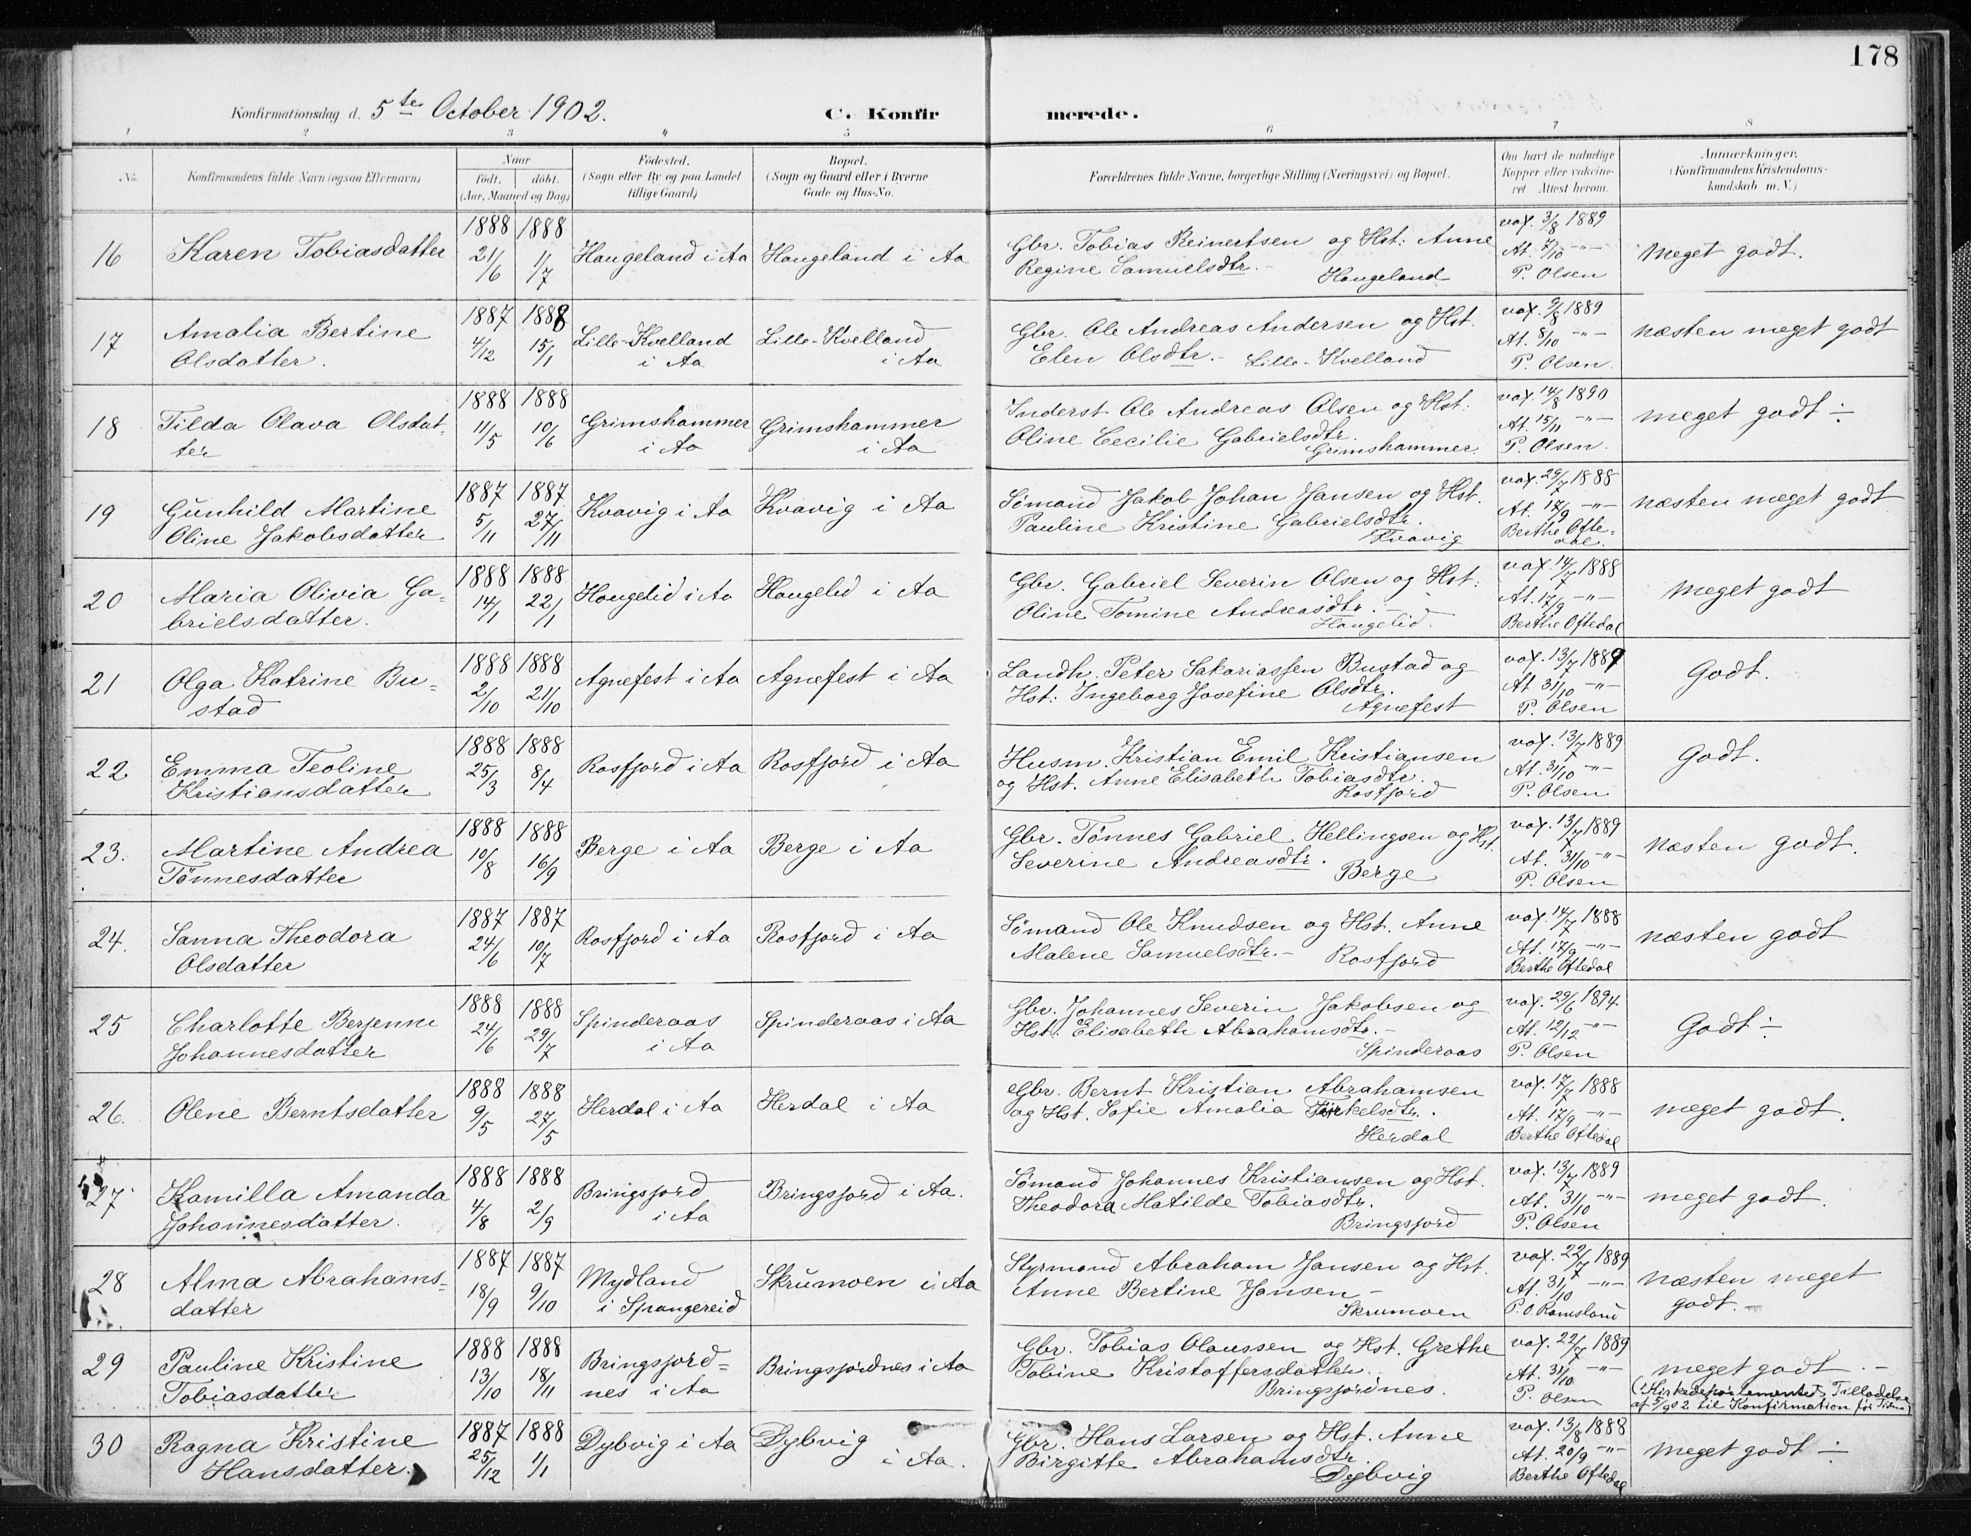 178
Konfirmationsdag d. 5te October 1902. C. Konfirmerede.
1 2 3 4 5 6 7 8
No. Konfirmandens fulde Navn (ogsaa Efternavn) Naar født. døbt. (Aar, Maaned og Dag) Fødested. (Sogn eller By og paa Landet tillige Gaard) Bopæl. (Sogn og Gaard eller i Byerne Gade og Hus-No. Forældrenes fulde Navne, borgerlige Stilling (Næringsvei) og Bopæl. Om havt de naturlige Kopper eller vakcineret Attest herom. Anmærkninger. (Konfirmandens Kristendomskundskab m. V.)
16 Karen Tobiasdatter 1888 21/6 1888 1/7 Haugeland i Aa Haugeland i Aa Gbr. Tobias Reinertsen og Hst: Anne Regine Samuelsdtr. - Haugeland vax. 3/8 1889 At. 7/10 -"- P. Olsen Meget godt.
17 Amalia Bertine Olsdatter. 1887 4/12 1888 15/1 Lille-Kvelland i Aa Lille-Kvelland i Aa Gbr. Ole Andreas Andersen og Hst. Elen Olsdtr. - Lille-Kvelland vax. 9/8 1889 At. 8/10 -"- P. Olsen. næsten meget godt
18 Tilda Olava Olsdatter 1888 11/5 1888 10/6 Grimshammer i Aa Grimshammer i Aa Inderst Ole Andreas Olsen og Hst: Oline Cecilie Gabrielsdtr. Grimshammer. vax. 14/8 1890 At. 15/11 -"- P. Olsen. meget godt ÷
19 Gunhild Martine Oline Jakobsdatter 1887 5/11 1887 27/11 Kvavig i Aa Kvavig i Aa Sømand Jakob Johan Jansen og Hst. Pauline Kristine Gabrielsdtr. Kvavig vax. 29/7 1888 At. 17/9 -"- Berthe Oftedal. næsten meget godt
20 Maria Olivia Gabrielsdatter. 1888 14/1 1888 22/1 Haugelid i Aa Haugelid i Aa Gbr. Gabriel Severin Olsen og Hst: Oline Tomine Andreasdtr. - Haugelid. vax. 14/7 1888 At. 17/9 -"- Berthe Oftedal meget godt
21 Olga Katrine Bustad 1888 2/10 1888 21/10 Agnefest i Aa Agnefest i Aa Landh. Peter Sakariassen Bustad og Hst: Ingeborg Josefine Olsdtr. Agnefest vax. 13/7 1889 At 31/10 -"- P. Olsen Godt.
22 Emma Teoline Kristiansdatter 1888 25/3 1888 8/4 Rosfjord i Aa Rosfjord i Aa Husm. Kristian Emil Kristiansen og Hst. Anne Elisabeth Tobiasdtr. Rosfjord vax. 13/7 1889 At. 31/10 -"- P. Olsen Godt.
23. Martine Andrea Tønnesdatter 1888 10/8 1888 16/9 Berge i Aa Berge i Aa Gbr. Tønnes Gabriel Hellingsen og Hst. Severine Andreasdtr. Berge vax. 13/7 1889 At. 31/10 -"- P. Olsen næsten godt.
24. Sanna Theodora Olsdatter 1887 24/6 1887 10/7 Rosfjord i Aa Rosfjord i Aa Sømand Ole Knudsen og Hst. Anne Malene Samuelsdtr. - Rosfjord vax. 14/7 1888 At. 17/9 -"- Berthe Oftedal næsten godt
25 Charlotte Berjenne Johannesdatter 1888 24/6 1888 29/7 Spinderaas i Aa Spinderaas i Aa Gbr. Johannes Severin Jakobsen og Hst: Elisabeth Abrahamsdtr. - Spinderaas vax. 29/6 1894. At. 12/12 -"- P. Olsen Godt ÷
26. Olene Berntsdatter 1888 9/5 1888 27/5 Herdal i Aa Herdal i Aa Gbr. Bernt Kristian Abrahamsen og Hst. Sofie Amalia Tørkelsdtr. Herdal vax. 17/7 1888 At. 17/9 -"- Berthe Oftedal meget godt.
27 Kamilla Amanda Johannesdatter. 1888 4/8 1888 2/9 Bringsjord i Aa Bringsjord i Aa. Sømand Johannes Kristiansen og Hst. Theodora Matilde Tobiasdtr. Bringsjord vax. 13/7 1889 At. 31/10 -"- P. Olsen meget godt.
28 Alma Abrahamsdatter 1887 18/9 1887 9/10 Mydland i Spangereid Skrumoen i Aa Styrmand Abraham Jansen og Hst. Anne Bertine Jansen - Skrumoen vax. 22/7 1889 At. 31/10 -"- P. O. Ramsland næsten meget godt. -
29 Pauline Kristine Tobiasdatter 1888 13/10 1888 18/11 Bringsjordnes i Aa Bringsjordnes i Aa Gbr. Tobias Olaussen og Hst. Grethe Tobine Kristoffersdatter. Bringsjordnes. vax. 22/7 1889 At. 31/10 -"- P. Olsen meget godt. - (Kirkedepartementets Tilladelse af 5/9 02 til Konfirmation før Tiden)
30 Ragna Kristine Hansdatter. 1887 25/12 1888 1/1 Dybvig i Aa Dybvig i Aa. Gbr. Hans Larsen og Hst. Anne Birgitte Abrahamsdtr. Dybvig vax. 13/8 1888 At. 20/9 -"- Berthe Oftedal meget godt ÷